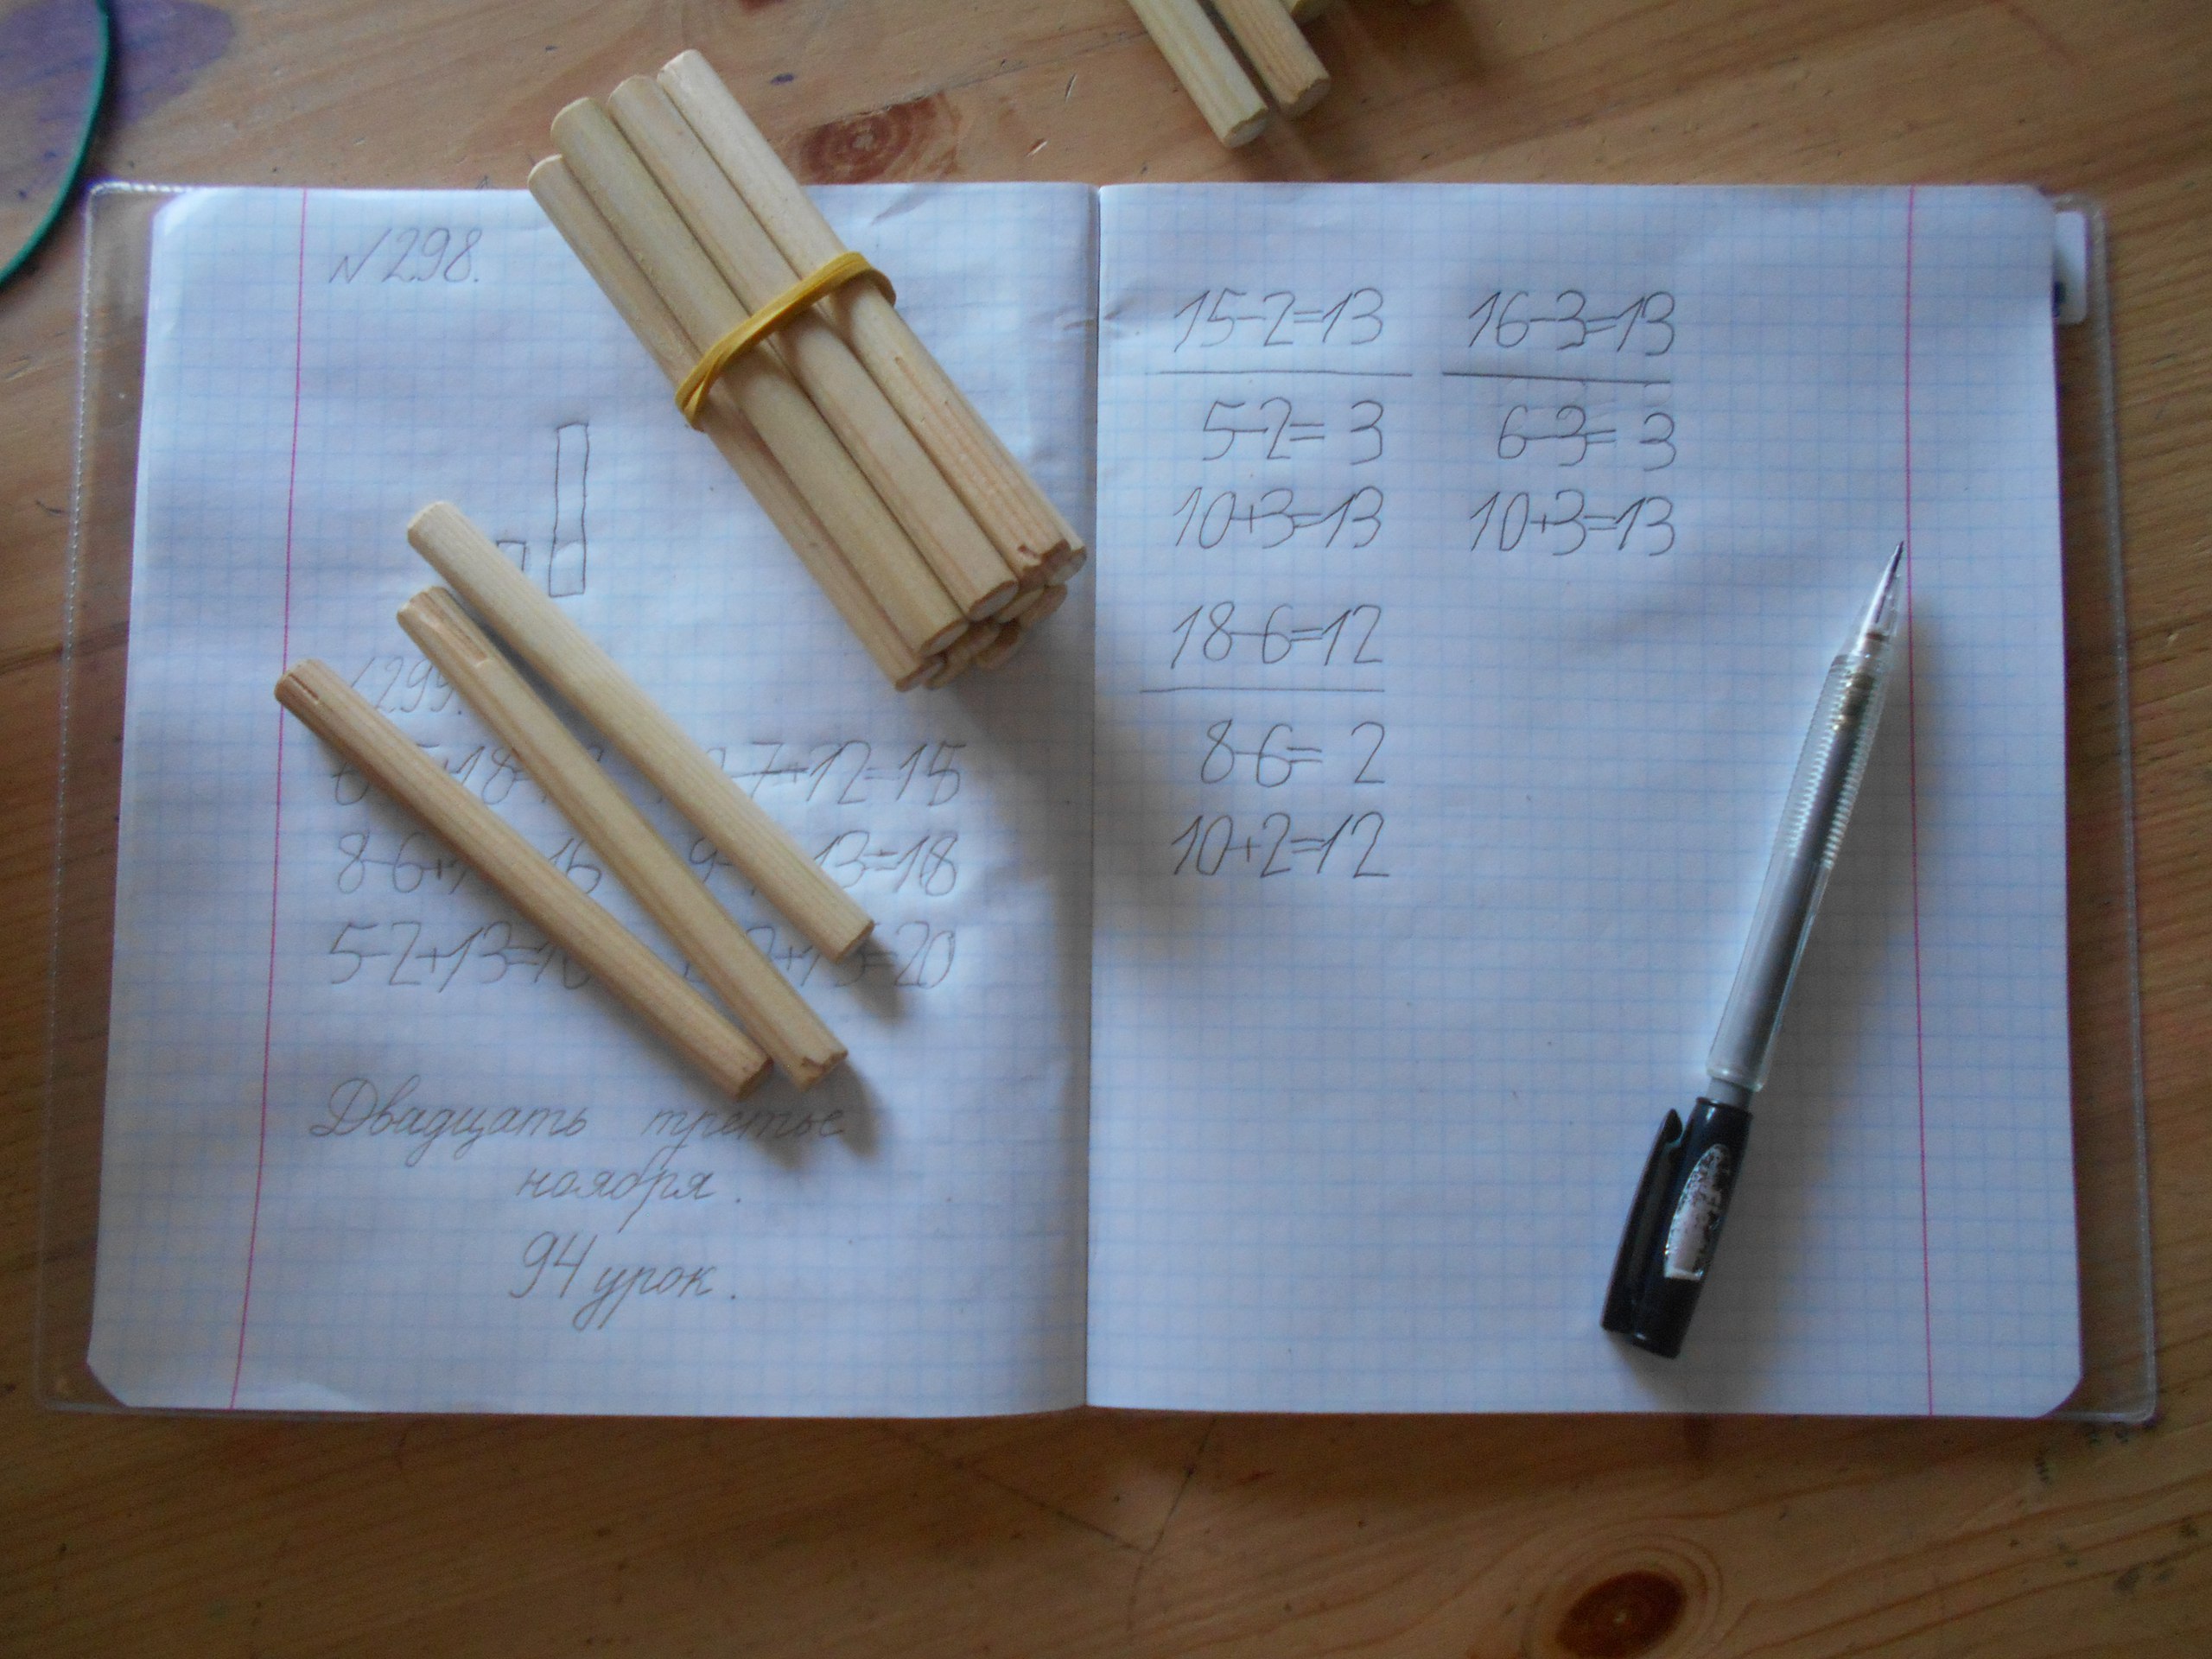 №298.
299.
+12=15
8-6+ 13=18
5-2+13= =20
Двадцать третье
ноября.
94 урок.
15-2=13 16-3=13
5-2= 3 6-3= 3
10+3=13 10+3=13
18-6=12
8-6= 2
10+2=12